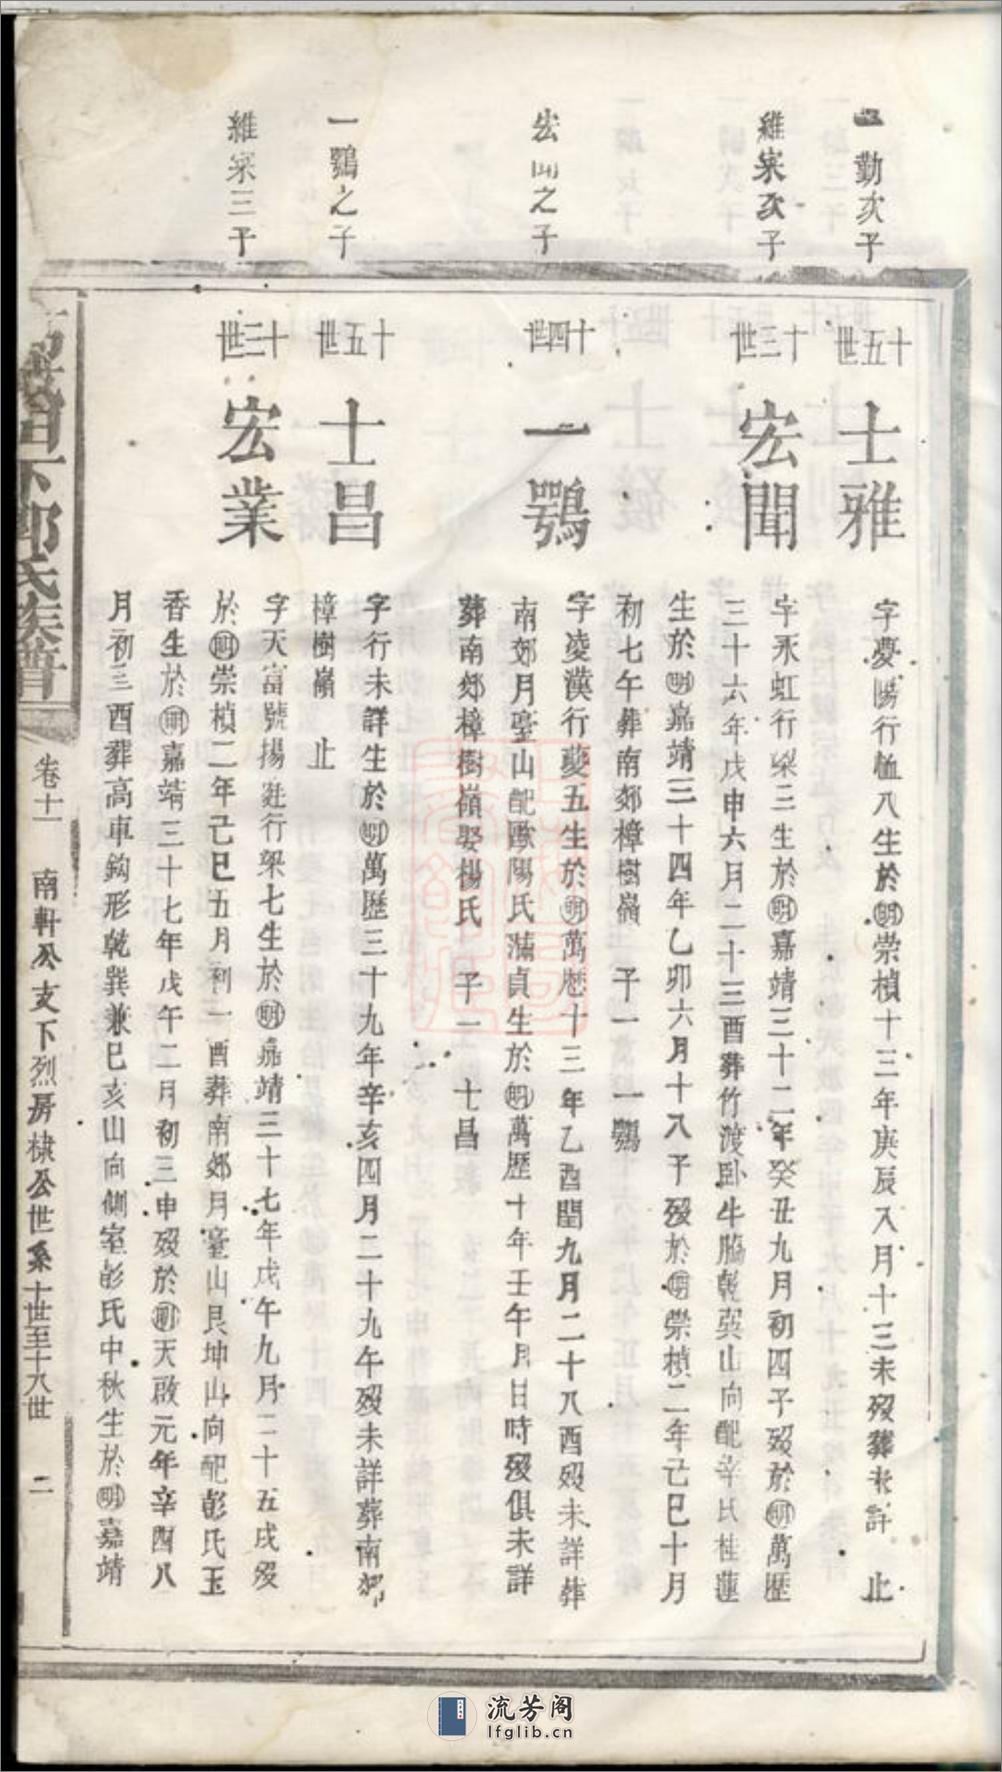 一勤次子
十五世
士雅
字夢陽行恤八生於明崇禎十三年庚辰八月十三未歿葬未詳 止
維宗次子
十三世
宏聞
字永虹行梁三生於明嘉靖三十二年癸丑九月初四子歿於明萬歷
三十六年戊申六月二十三酉葬竹渡臥牛腦乾巽山向配辛氏桂蓮
生於明嘉靖三十四年乙卯六月十八子歿於明崇禎二年己巳十月
初七午葬南郊樟樹嶺 子一 一鶚
宏聞之子
十四世
一鶚
字凌漢行夔五生於明萬歷十三年乙酉閏九月二十八酉歿未詳葬
南郊月臺山配歐陽氏滿貞生於明萬歷十年壬午月日時歿俱未詳
葬南郊樟樹嶺娶楊氏 子一 士昌
一鶚之子
十五世
士昌
字行未詳生於明萬歷三十九年辛亥四月二十九午歿未詳葬南郊
樟樹嶺 止
維宗三子
十三世
宏業
字天富號揚廷行梁七生於明嘉靖三十七年戊午九月二十五戌歿
於明崇禎二年己巳五月初一酉葬南郊月臺山艮坤山向配彭氏玉
香生於明嘉靖三十七年戊午二月初三申歿於明天啟元年辛酉八
月初三酉葬高車鈎形乾巽兼巳亥山向側室彭氏中秋生於明嘉靖
下郭氏族譜
卷十一 南軒公支下烈房棣公世系十世至十八世 二
流芳阁
lfglib.cn